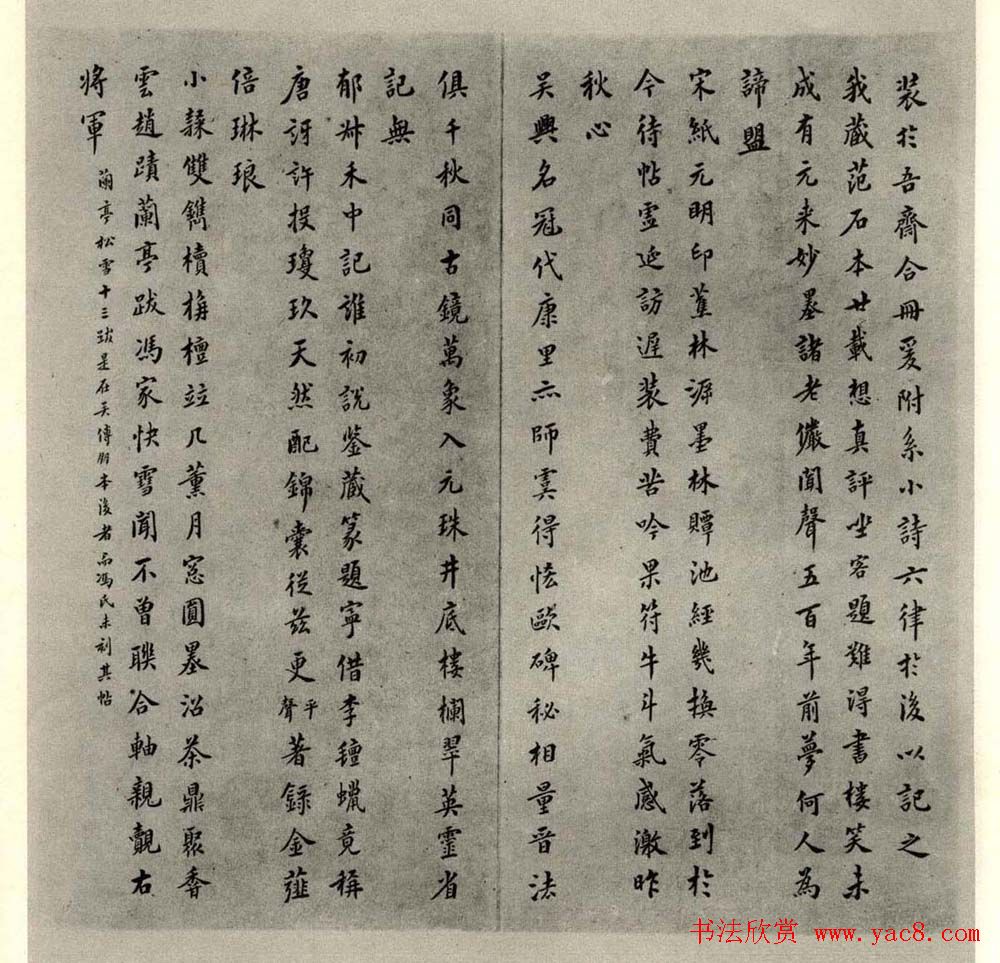 裝於吾齋合冊爰附系小詩六律於後以記之
我藏范石本廿載想真評坐客題難得書樓笑未
成有元來妙墨諸老儼聞聲五百年前夢何人為
諦盟
宋紙元明印蕉林泝墨林贉池經幾換零落到於
今待帖靈延訪遲裝費苦吟果符牛斗氣感激昨
秋心
吳興名冠代康里亦師虞得恠歐碑秘相量晉法
俱千秋同古鏡萬象入元珠井底樓欄翠英靈省
記無
郁㕑禾中記誰初說鑒藏篆題寧借李鐔蠟竟稱
唐訝許投瓊玖天然配錦囊從茲更平聲著錄金薤
倍琳琅
小隸雙鐫櫝栴檀竝几薰月窓圓墨沼茶鼎聚香
雲趙蹟蘭亭跋馮家快雪聞不曾聯合軸親覿右
將軍 蘭亭松雪十三跋是在吳傅朋本後者而馮氏未刻其帖
书法欣赏 www.yac8.com